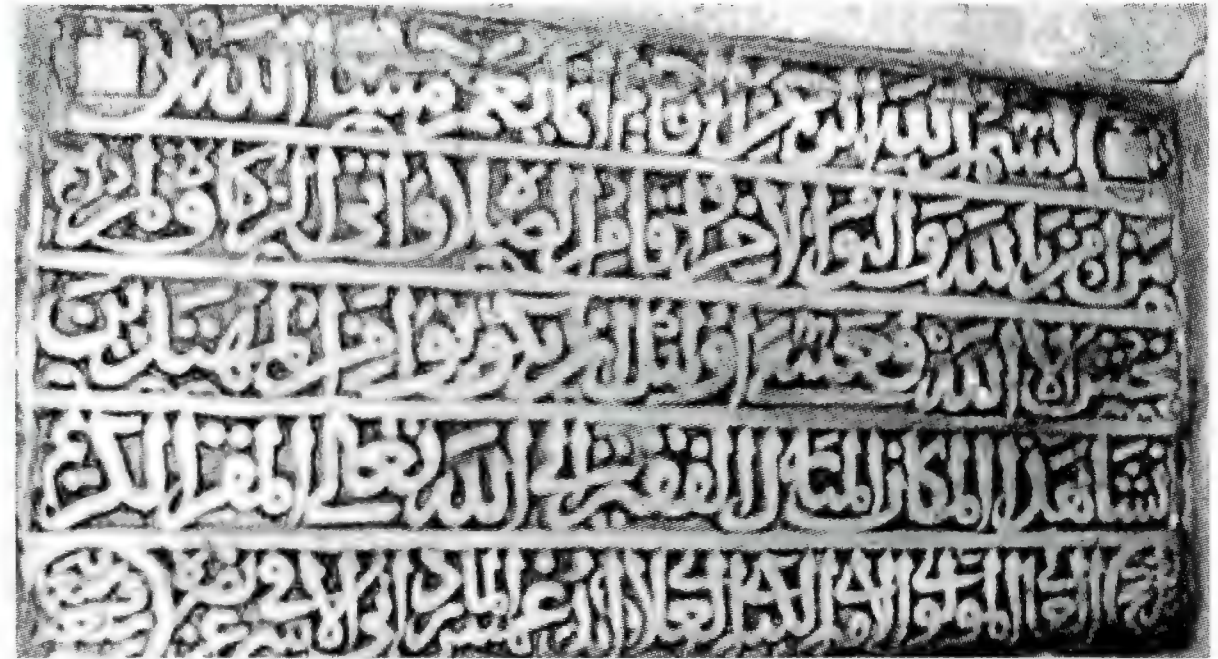 بسم الله الرحمن الرحيم انما يعمر مساجد الله
من امن بالله واليوم الاخر واقام الصلاة واتى الزكاة ولم
يخش الا الله فعسى اولئك ان يكونوا من المهتدين
انشا هذا المكان المبارك الفقير الى الله تعالى المقر الكريم
العالى المولوى